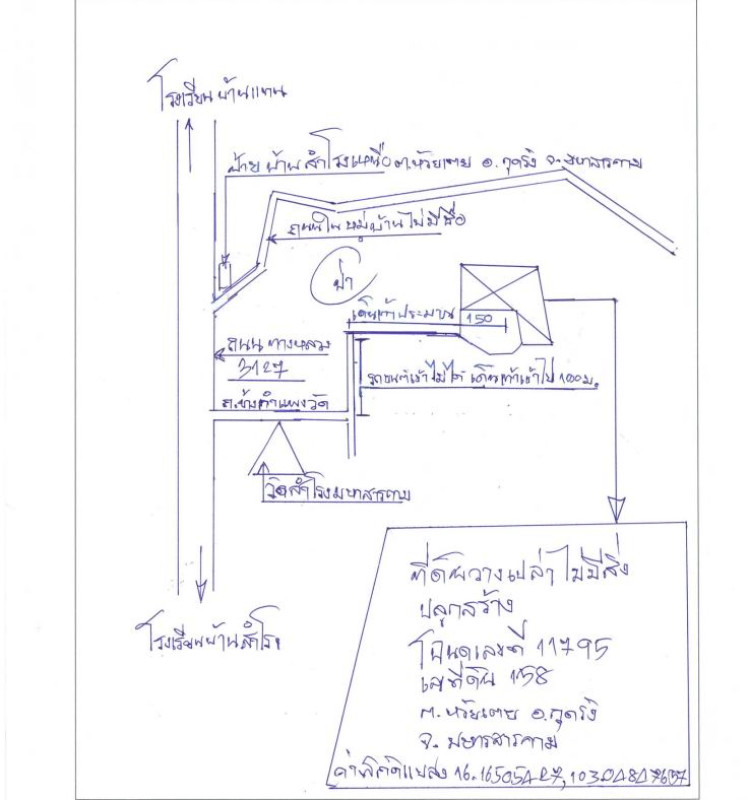 โรงเรียนบ้านแทน
ป้าย บ้านสำโรงเหนือ ต.ห้วยเตย อ.กุดรัง จ.มหาสารคาม
ถนนในหมู่บ้านไม่มีชื่อ
ป่า
เดินเท้าประมาณ 150
ถนน ทางหลวง
3127
รถยนต์เข้าไม่ได้ เดินเท้าเข้าไป 100 ม.
ถ.ข้างกำแพงวัด
วัดสำโรงมหาสารคาม
โรงเรียนบ้านสำโรง
ที่ดินวางเปล่า ไม่มีสิ่ง
ปลูกสร้าง
โฉนดเลขที่ 11795
เลขที่ดิน 158
ต.ห้วยเตย อ.กุดรัง
จ.มหาสารคาม
ค่าพิกัดแปลง 16.16505427,